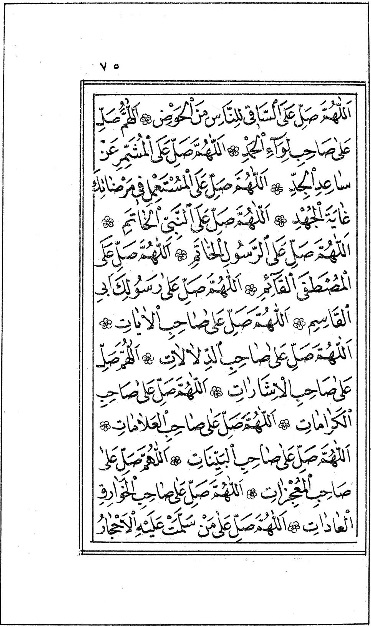 ٧٥
اَللّٰهُمَّ صَلِّ عَلَى السَّاقِي لِلنَّاسِ مِنَ الْحَوْضِ ❁ اَللّٰهُمَّ صَلِّ
عَلٰى صَاحِبِ لِوَاۤءِ الْحَمْدِ ❁ اَللّٰهُمَّ صَلِّ عَلَى الْمُشَمِّرِ عَنْ
سَاعِدِ الْجِدِّ ❁ اَللّٰهُمَّ صَلِّ عَلَى الْمُسْتَعْمِلِ فِي مَرْضَاتِكَ
غَايَةَ الْجُهْدِ ❁ اَللّٰهُمَّ صَلِّ عَلَى النَّبِيِّ الْخَاتِمِ ❁
اَللّٰهُمَّ صَلِّ عَلَى الرَّسُولِ الْخَاتَمِ ❁ اَللّٰهُمَّ صَلِّ عَلَى
الْمُصْطَفَى الْقَاۤئِمِ ❁ اَللّٰهُمَّ صَلِّ عَلٰى رَسُولِكَ اَبِي
الْقَاسِمِ ❁ اَللّٰهُمَّ صَلِّ عَلٰى صَاحِبِ الْاٰيَاتِ ❁
اَللّٰهُمَّ صَلِّ عَلٰى صَاحِبِ الدِّلَالَاتِ ❁ اَللّٰهُمَّ صَلِّ
عَلٰى صَاحِبِ الْاِشَارَاتِ ❁ اَللّٰهُمَّ صَلِّ عَلٰى صَاحِبِ
الْكَرَامَاتِ ❁ اَللّٰهُمَّ صَلِّ عَلٰى صَاحِبِ الْعَلَامَاتِ ❁
اَللّٰهُمَّ صَلِّ عَلٰى صَاحِبِ الْبَيِّنَاتِ ❁ اَللّٰهُمَّ صَلِّ عَلٰى
صَاحِبِ الْمُعْجِزَاتِ ❁ اَللّٰهُمَّ صَلِّ عَلٰى صَاحِبِ الْخَوَارِقِ
الْعَادَاتِ ❁ اَللّٰهُمَّ صَلِّ عَلٰى مَنْ سَلَّمَتْ عَلَيْهِ الْاَحْجَارُ